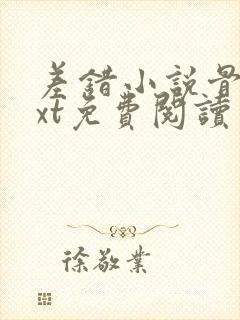 差錯小説最
xt免費閱讀
徐敬業